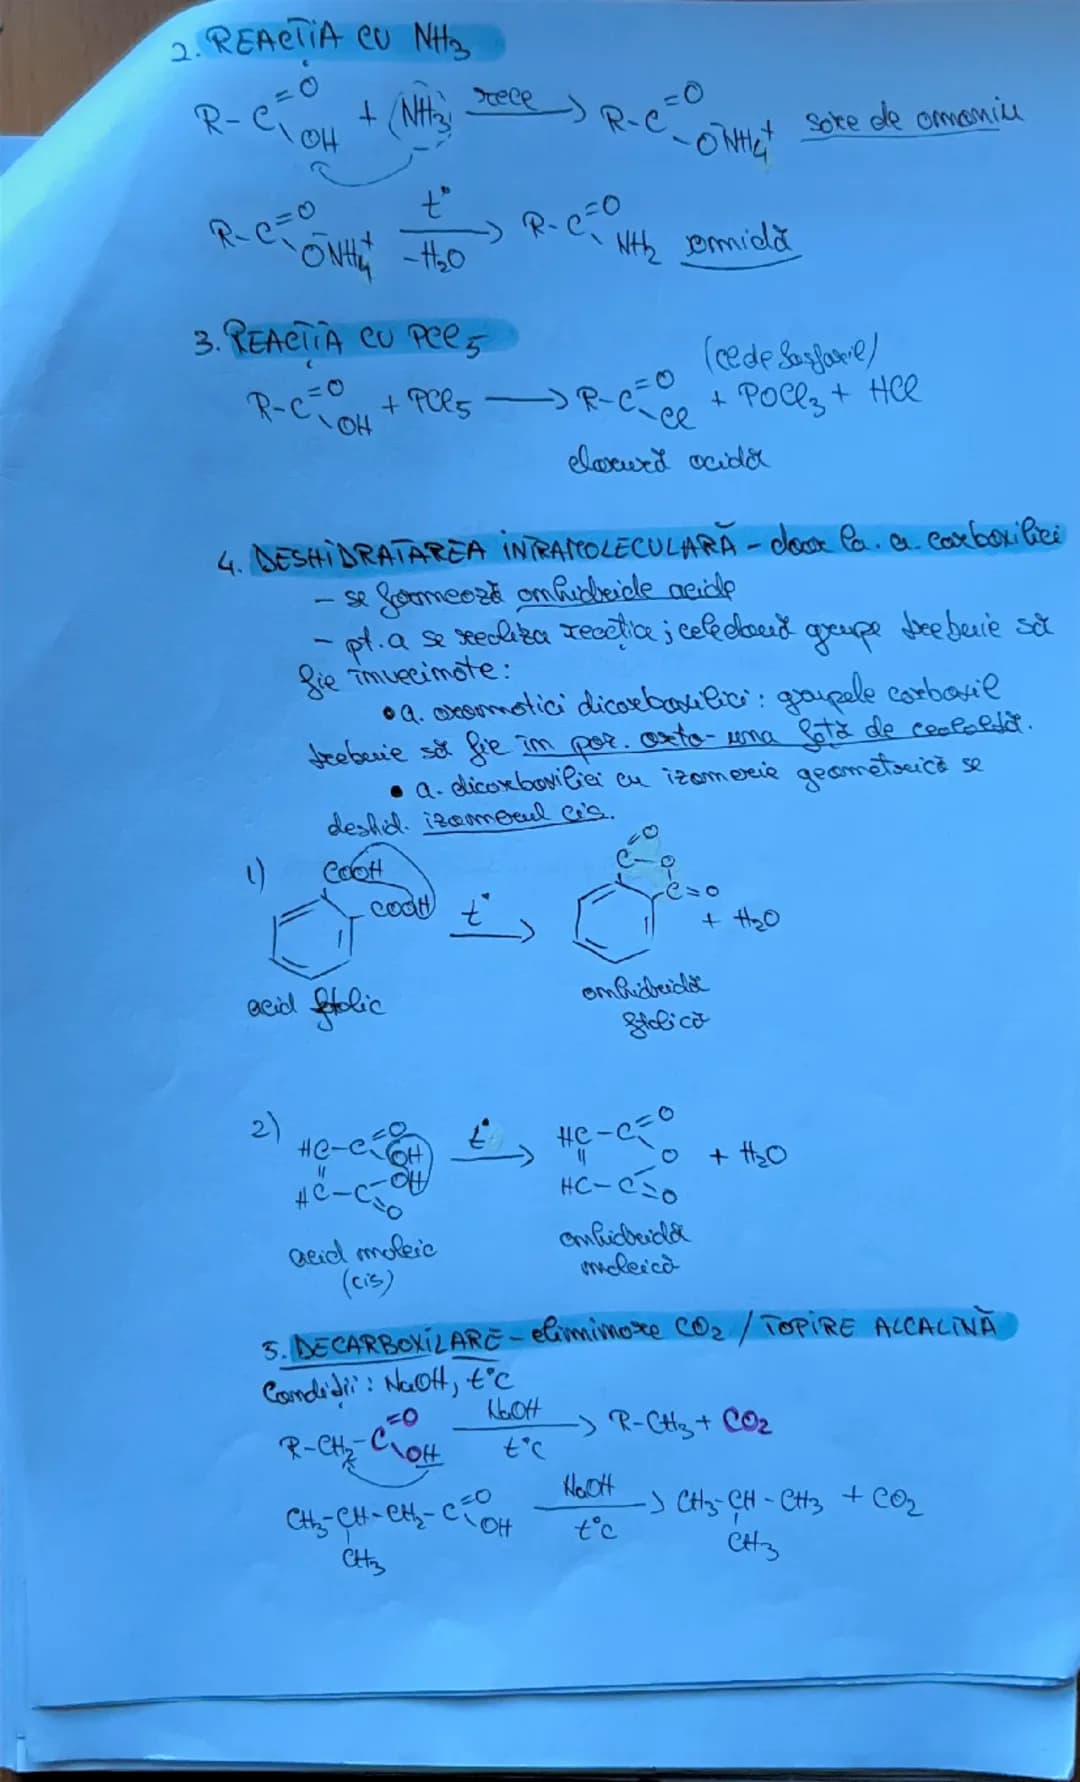 2. REACȚIA CU NH3
R-C=O OH + NH3 rece → R-C=O O⁻NH4⁺ sare de amoniu
R-C=O O⁻NH4⁺ t° → -H2O R-C=O NH2 amidă
3. REACȚIA CU PCl5
(cede fosforil)
R-C=O OH + PCl5 → R-C=O Cl + POCl3 + HCl
clorură acidă
4. DESHIDRATAREA INTRAMOLECULARĂ - doar la a. carboxilici
- se formează anhidride acide
- pt. a se realiza reacția; cele două grupe trebuie să
fie învecinate:
• a. aromatici dicarboxilici: grupele carboxil
trebuie să fie în poz. orto- una față de cealaltă.
• a. dicarboxilici cu izomerie geometrică se
deshid. izomerul cis.
1) COOH COOH t° → C=O O C=O + H2O
acid ftalic anhidridă
ftalică
2) HC-C=O OH t° → HC-C=O O + H2O
HC-C-OH =O HC-C=O
acid maleic anhidridă
(cis) maleică
5. DECARBOXILARE - eliminare CO2 / TOPIRE ALCALINĂ
Condiții: NaOH, t°C
R-CH2-C=O OH NaOH → t°C R-CH3 + CO2
CH3-CH-CH2-C=O OH NaOH → t°C CH3-CH-CH3 + CO2
CH3 CH3